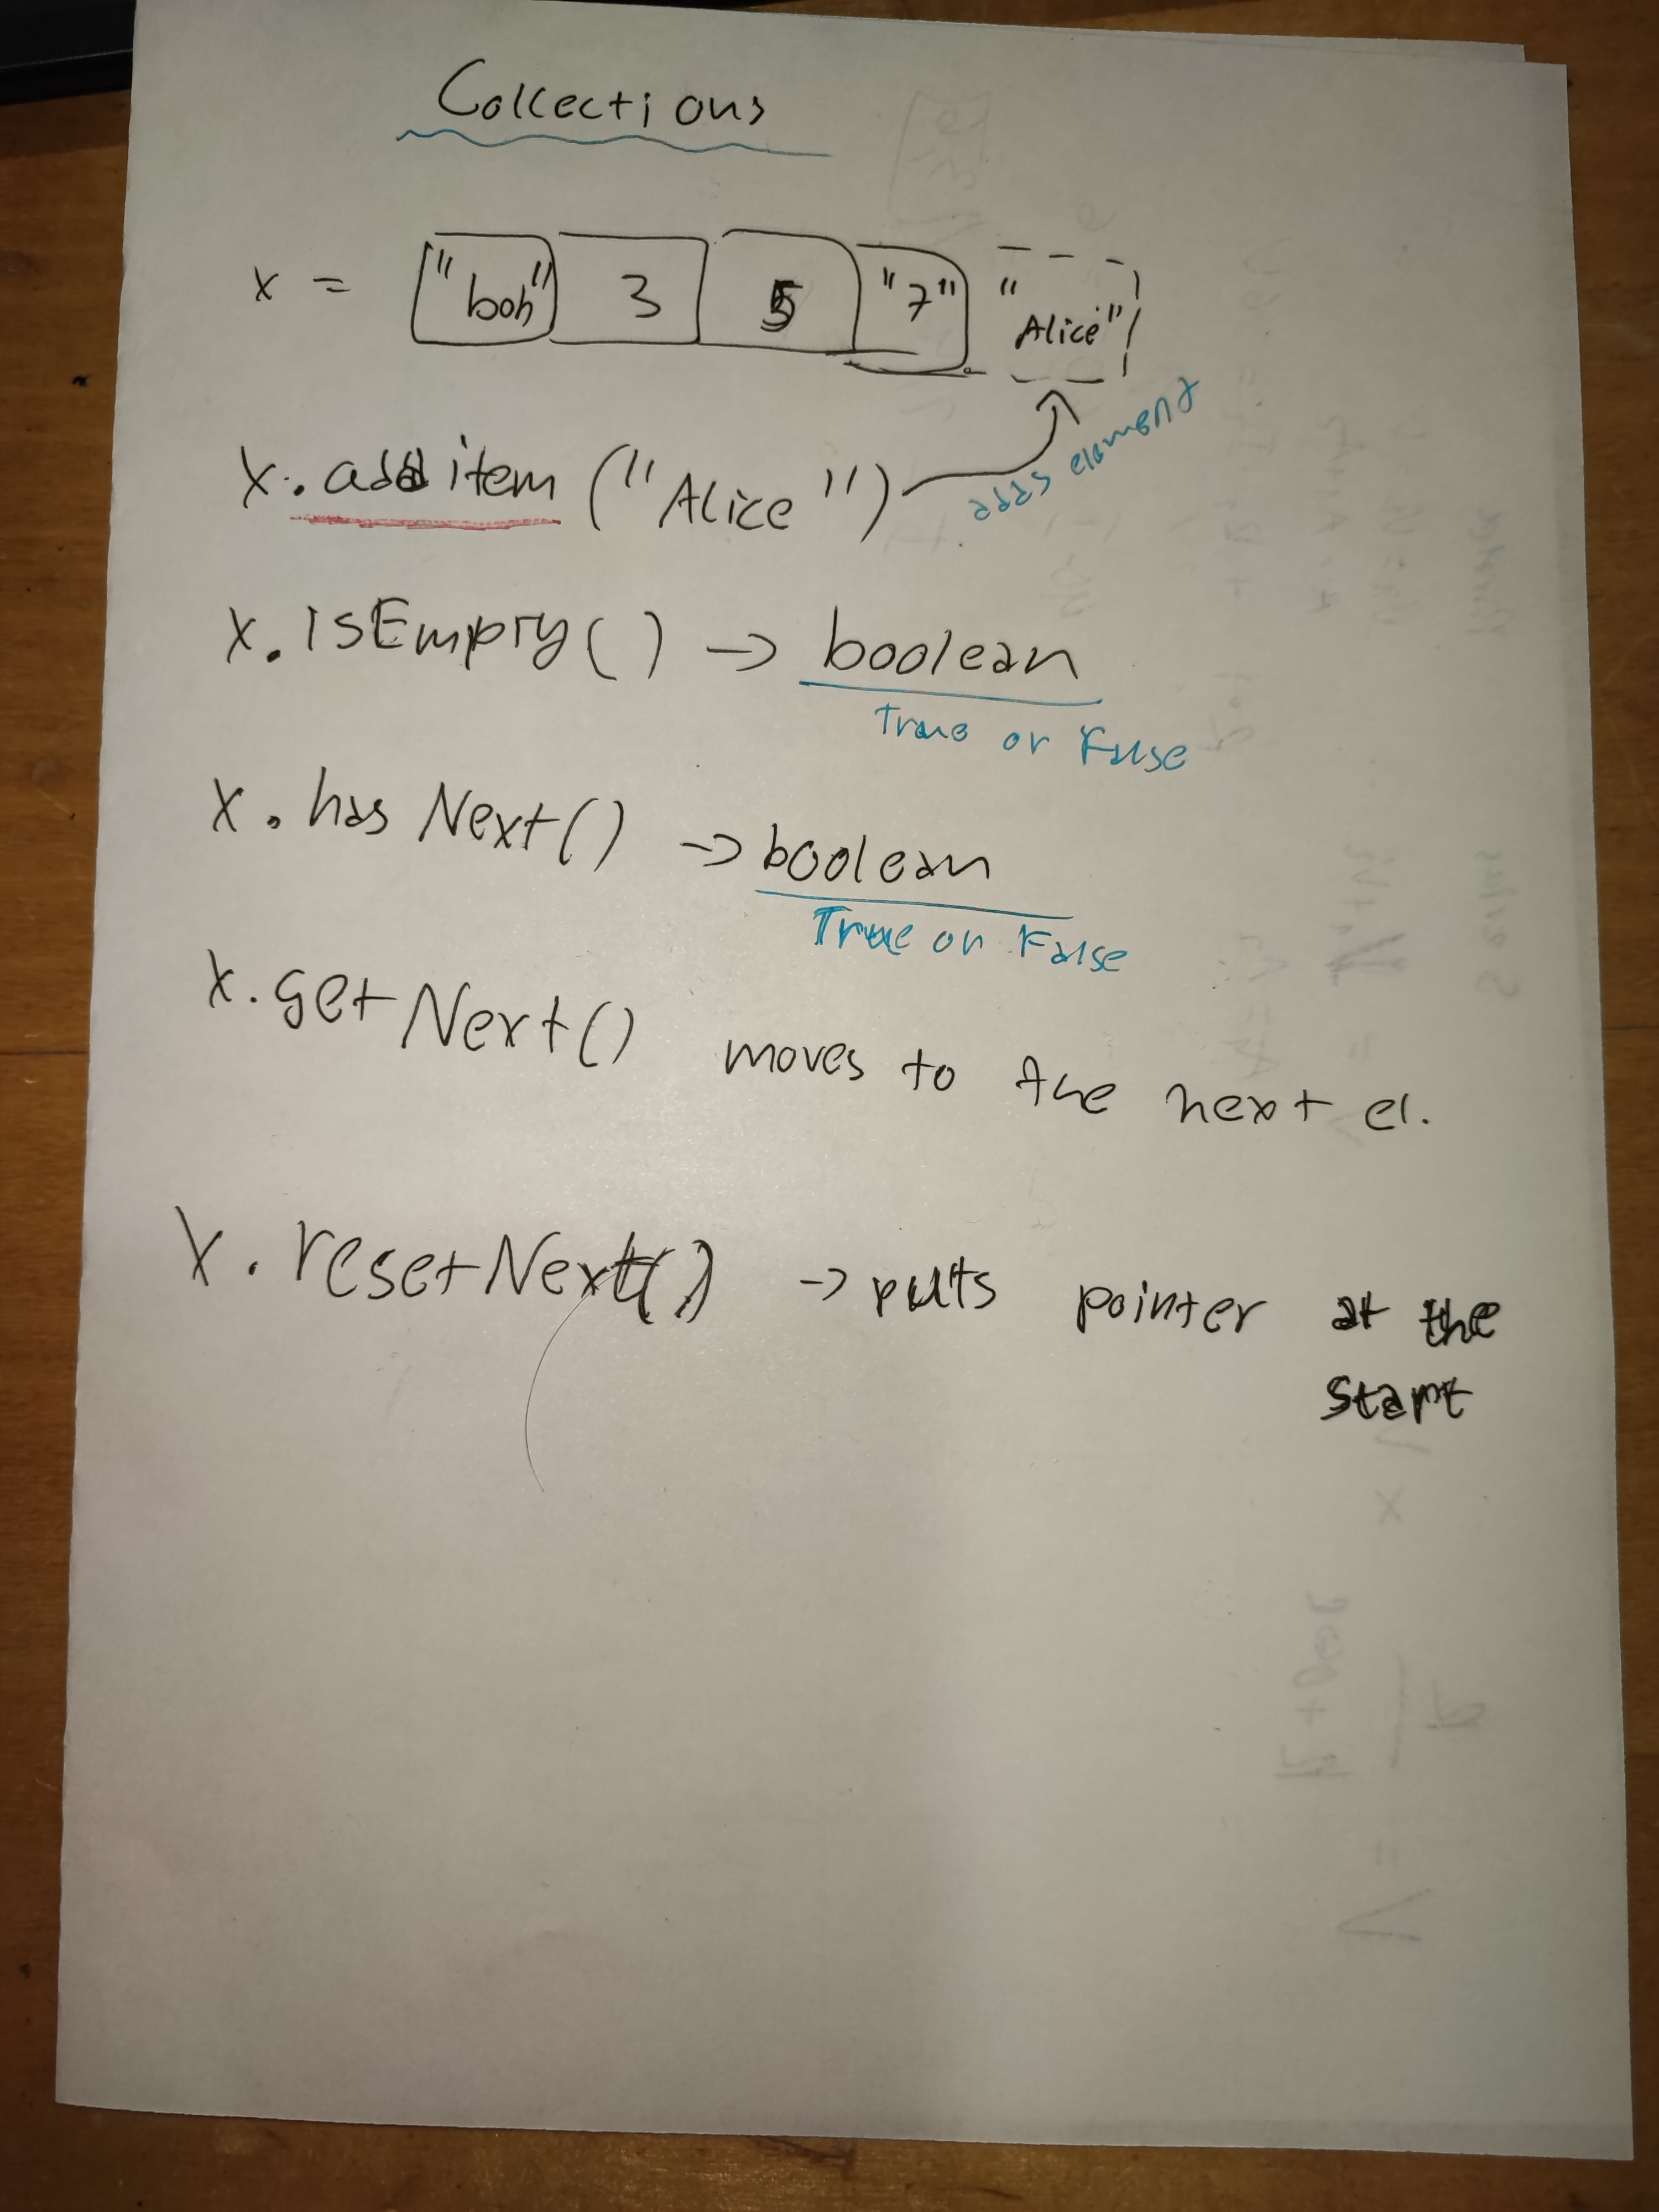 Collections
x = "boh" 3 5 "7" "Alice"
x.additem ("Alice") adds element
x.isEmpty() -> boolean
True or False
x.hasNext() -> boolean
True or False
x.getNext() moves to the next el.
x.resetNext() -> puts pointer at the
start